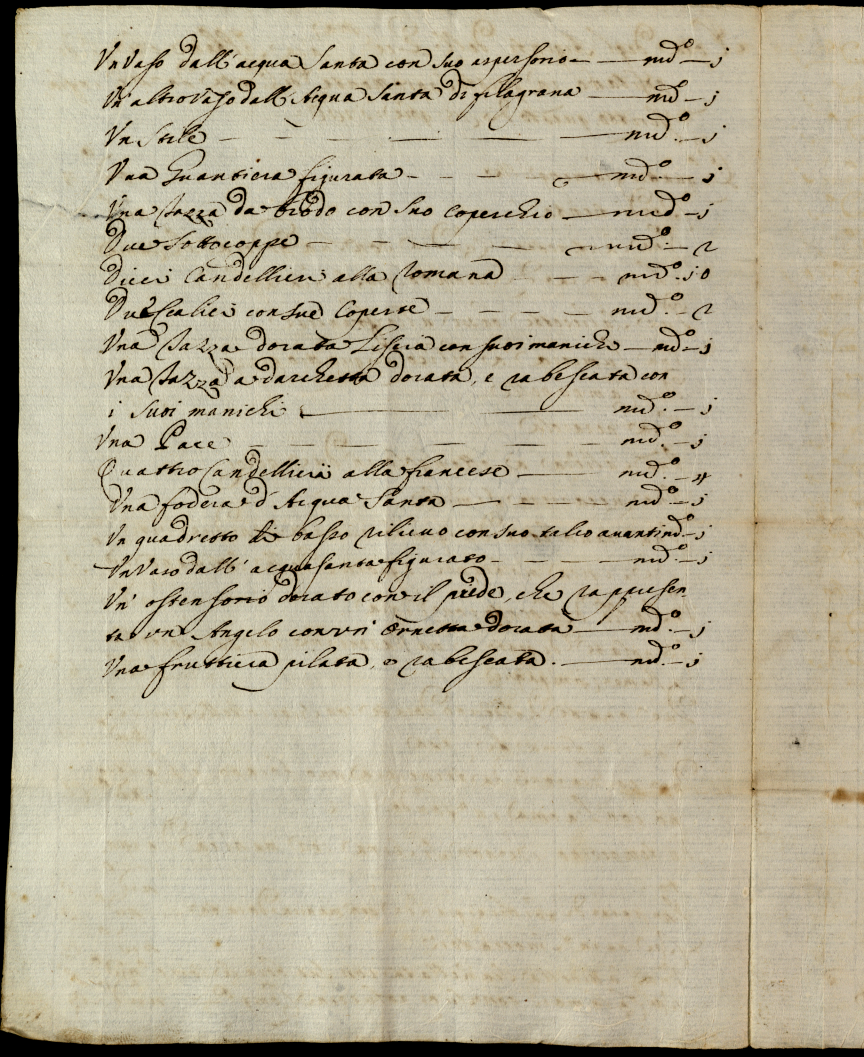 Un Vaso dall'acqua Santa con suo aspersorio — nu.º — j
Un'altro Vaso dall'Acqua Santa di filagrana — nu.º — j
Un Stile — — — — nu.º — j
Una Guantiera figurata — — — nu.º — j
Una Tazza da brodo con suo Coperchio — nu.º — j
Due Sottocoppe — — — — nu.º — 2
Dieci Candellieri alla Romana — — nu.º j0
Due Scalier con sue Coperte — — — nu.º — 2
Una Tazza dorata Liscia con suoi manichi — nu.º — j
Una Tazza a darchetta dorata, e rabescata con
i suoi manichi — — — nu.º — j
Una Pace — — — — — nu.º — j
Quattro Candellieri alla francese — — nu.º — 4
Una fodera d'Acqua Santa — — — nu.º — j
Un quadretto di basso rilievo con suo talco avanti nu.º — j
Un Vaso dall'acqua santa figurato — — — nu.º — j
Un' ostensorio dorato con il piede, che rappresen
ta un Angelo con un' dorata — nu.º — j
Una fruttiera pilata, o rabescata. — nu.º — j